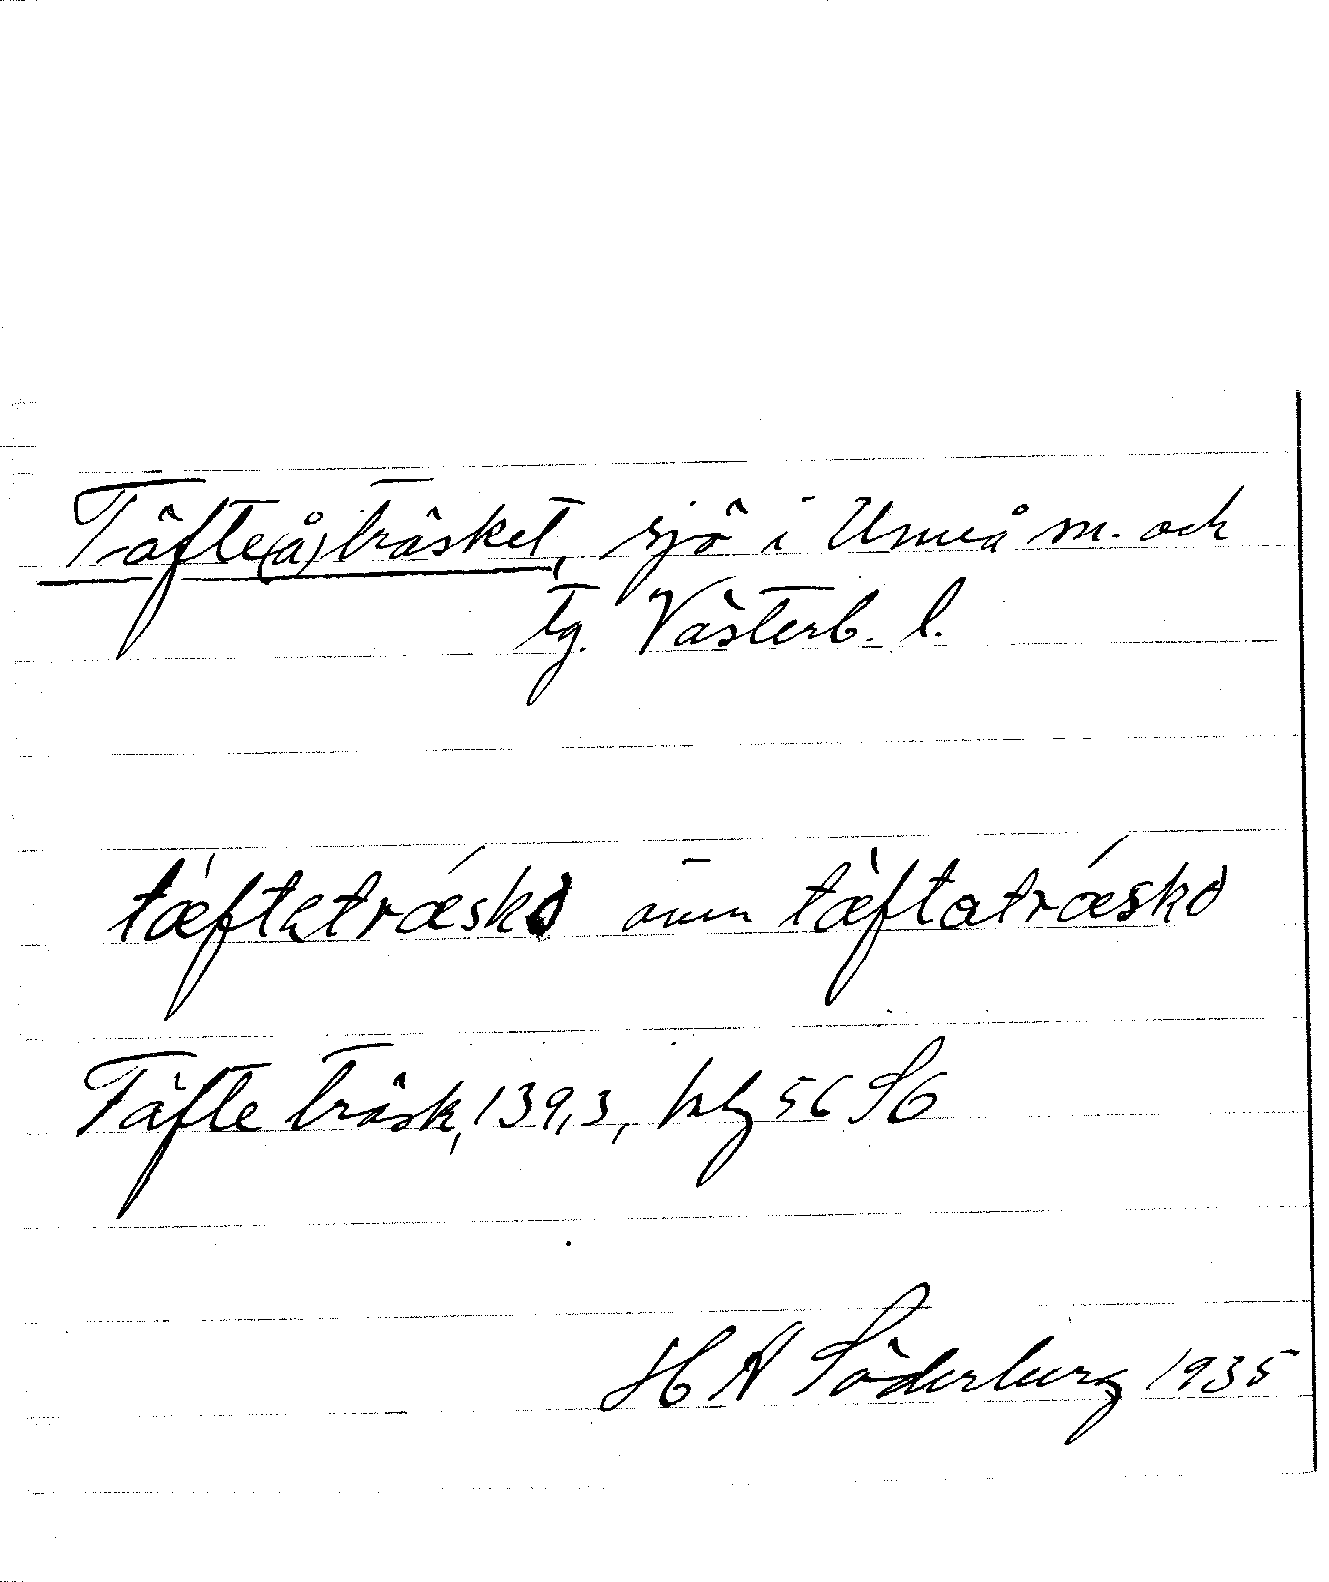 Täfte(å)träsket, sjö i Umeå sn. och
tg. Västerb. l.
tæftatræskə även tæftatræskə
Täfte träsk, 139,3, bl 56 S6
H A Söderberg 1935